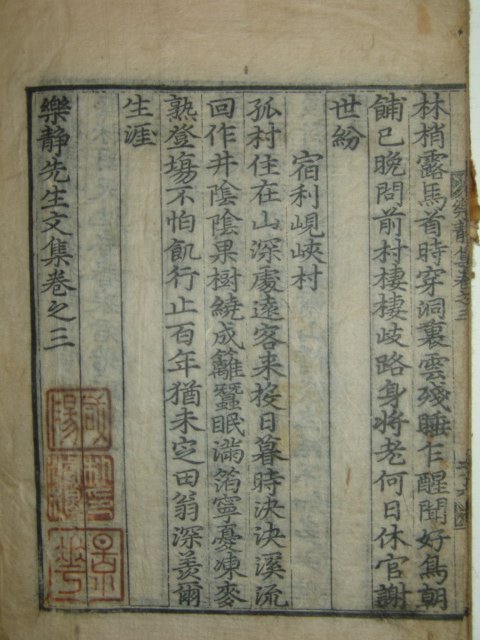 林梢露馬首時穿洞裏雲殘睡乍醒聞好鳥朝
餔已晩問前村棲棲歧路身將老何日休官謝
世紛
宿利峴峽村
孤村住在山深處遠客來投日暮時決決溪流
回作井陰陰果樹繞成籬蠶眠滿箔寧憂凍麥
熟登場不怕飢行止百年猶未定田翁深羡爾
生涯
樂静先生文集卷之三